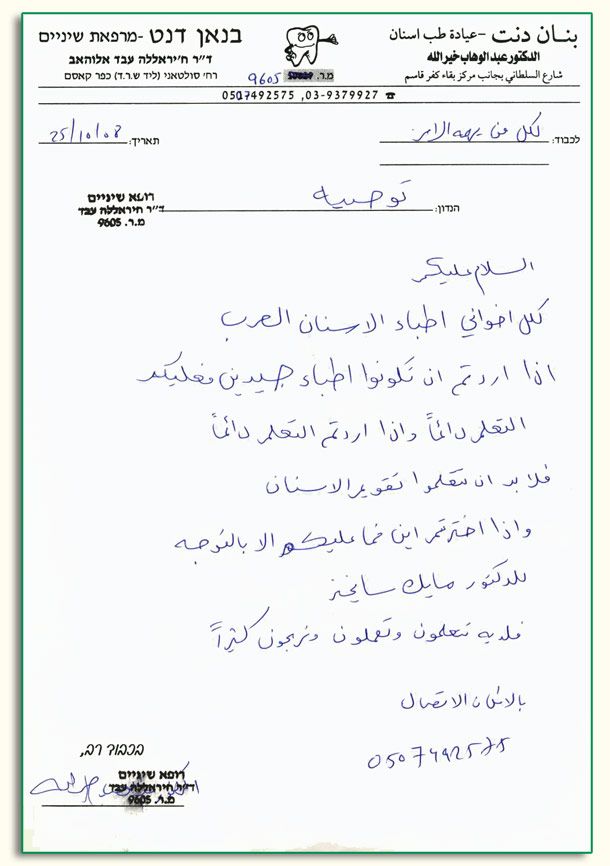 בנאן דנט -מרפאת שיניים
ד"ר ח'יראללה עבד אלוהאב
רח' סולטאני (ליד ש.ר.ד) כפר קאסם
بنـان دنت -عيادة طب اسنان
الدكتور عبد الوهاب خير الله
شارع السلطاني بجانب مركز بقاء كفر قاسم
מ.ר.
9605
☎ 03-9379927, 0507492575
לכבוד: لكل من يهمه الامر
תאריך: 25/10/08
הנדון: توصيه
רופא שיניים
ד"ר חיראללה עבד
מ.ר. 9605
السلام عليكم
لكل اخواني اطباء الاسنان العرب
اذا اردتم ان تكونوا اطباء جيدين فعليكم
التعلم دائماً واذا اردتم التعلم دائماً
فلا بد ان تتعلموا تقويم الاسنان
واذا اخترتم اين فما عليكم الا بالتوجه
للدكتور مايك سانجز
فلديه تتعلمون وتعملون وتربحون كثيراً
بالامكان الاتصال
0507492575
בכבוד רב,
רופא שיניים
ד"ר חיראללה עבד
מ.ר. 9605